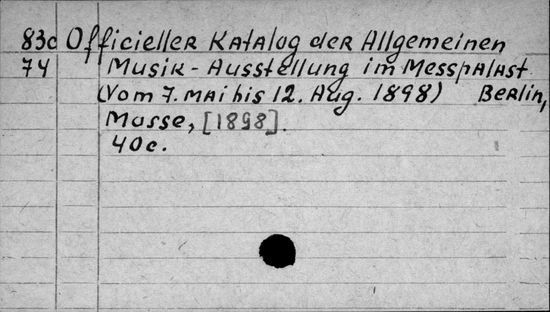 83c Officieller Katalog der Allgemeinen
74 Musik-Ausstellung im Messpalast
(Vom 7. Mai bis 12. Aug. 1898) Berlin,
Mosse, [1898].
40c.